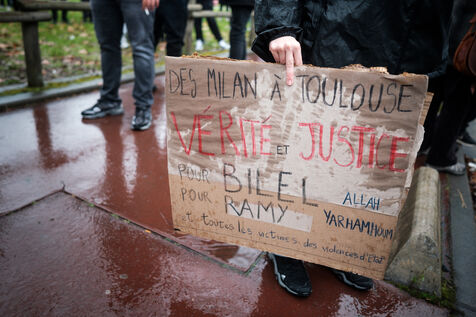 DES MILAN À TOULOUSE
VÉRITÉ ET JUSTICE
POUR BILEL
POUR RAMY
ALLAH
YARHAMHOUM
et toutes les victimes des violences d'État